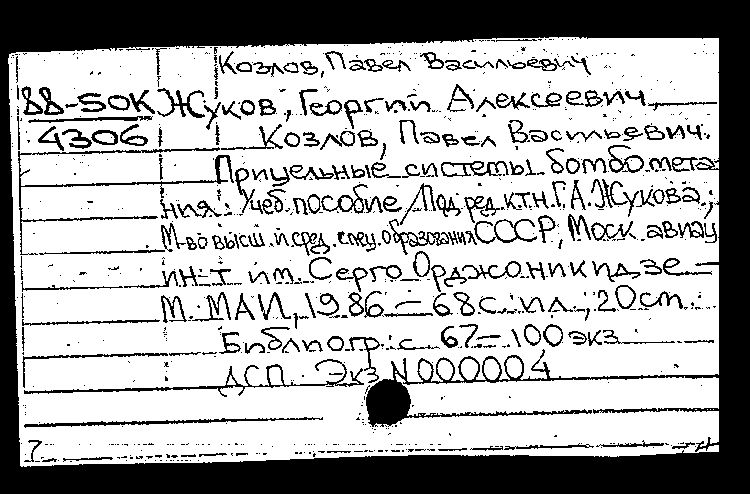 Козлов, Павел Васильевич
88-50К Жуков, Георгий Алексеевич,
4306 Козлов, Павел Васильевич.
Прицельные системы бомбомета-
ния: Учеб. пособие / Под ред. к.т.н. Г.А. Жукова;
М-во высш. и сред. спец. образования СССР, Моск авиац
ин-т им. Серго Орджоникидзе –
М. МАИ, 1986 – 68 с. ил.; 20 см.
Библиогр: с 67 – 100 экз
ДСП. Экз N 000004
7